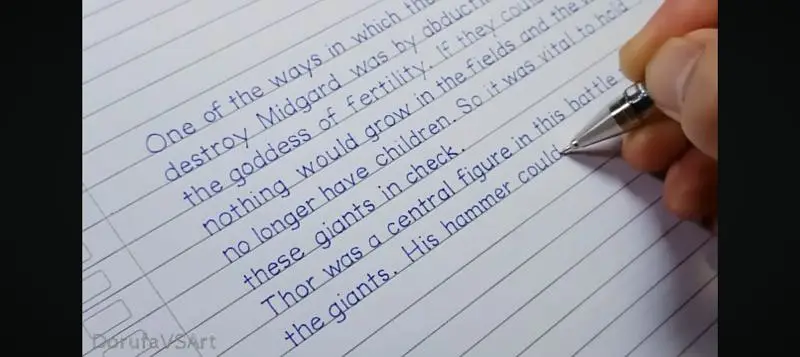 One of the ways in which the
destroy Midgard was by abducti
the goddess of fertility. If they coul
nothing would grow in the fields and the
no longer have children. So it was vital to hold
these giants in check.
Thor was a central figure in this battle
the giants. His hammer could
DorufaVSArt